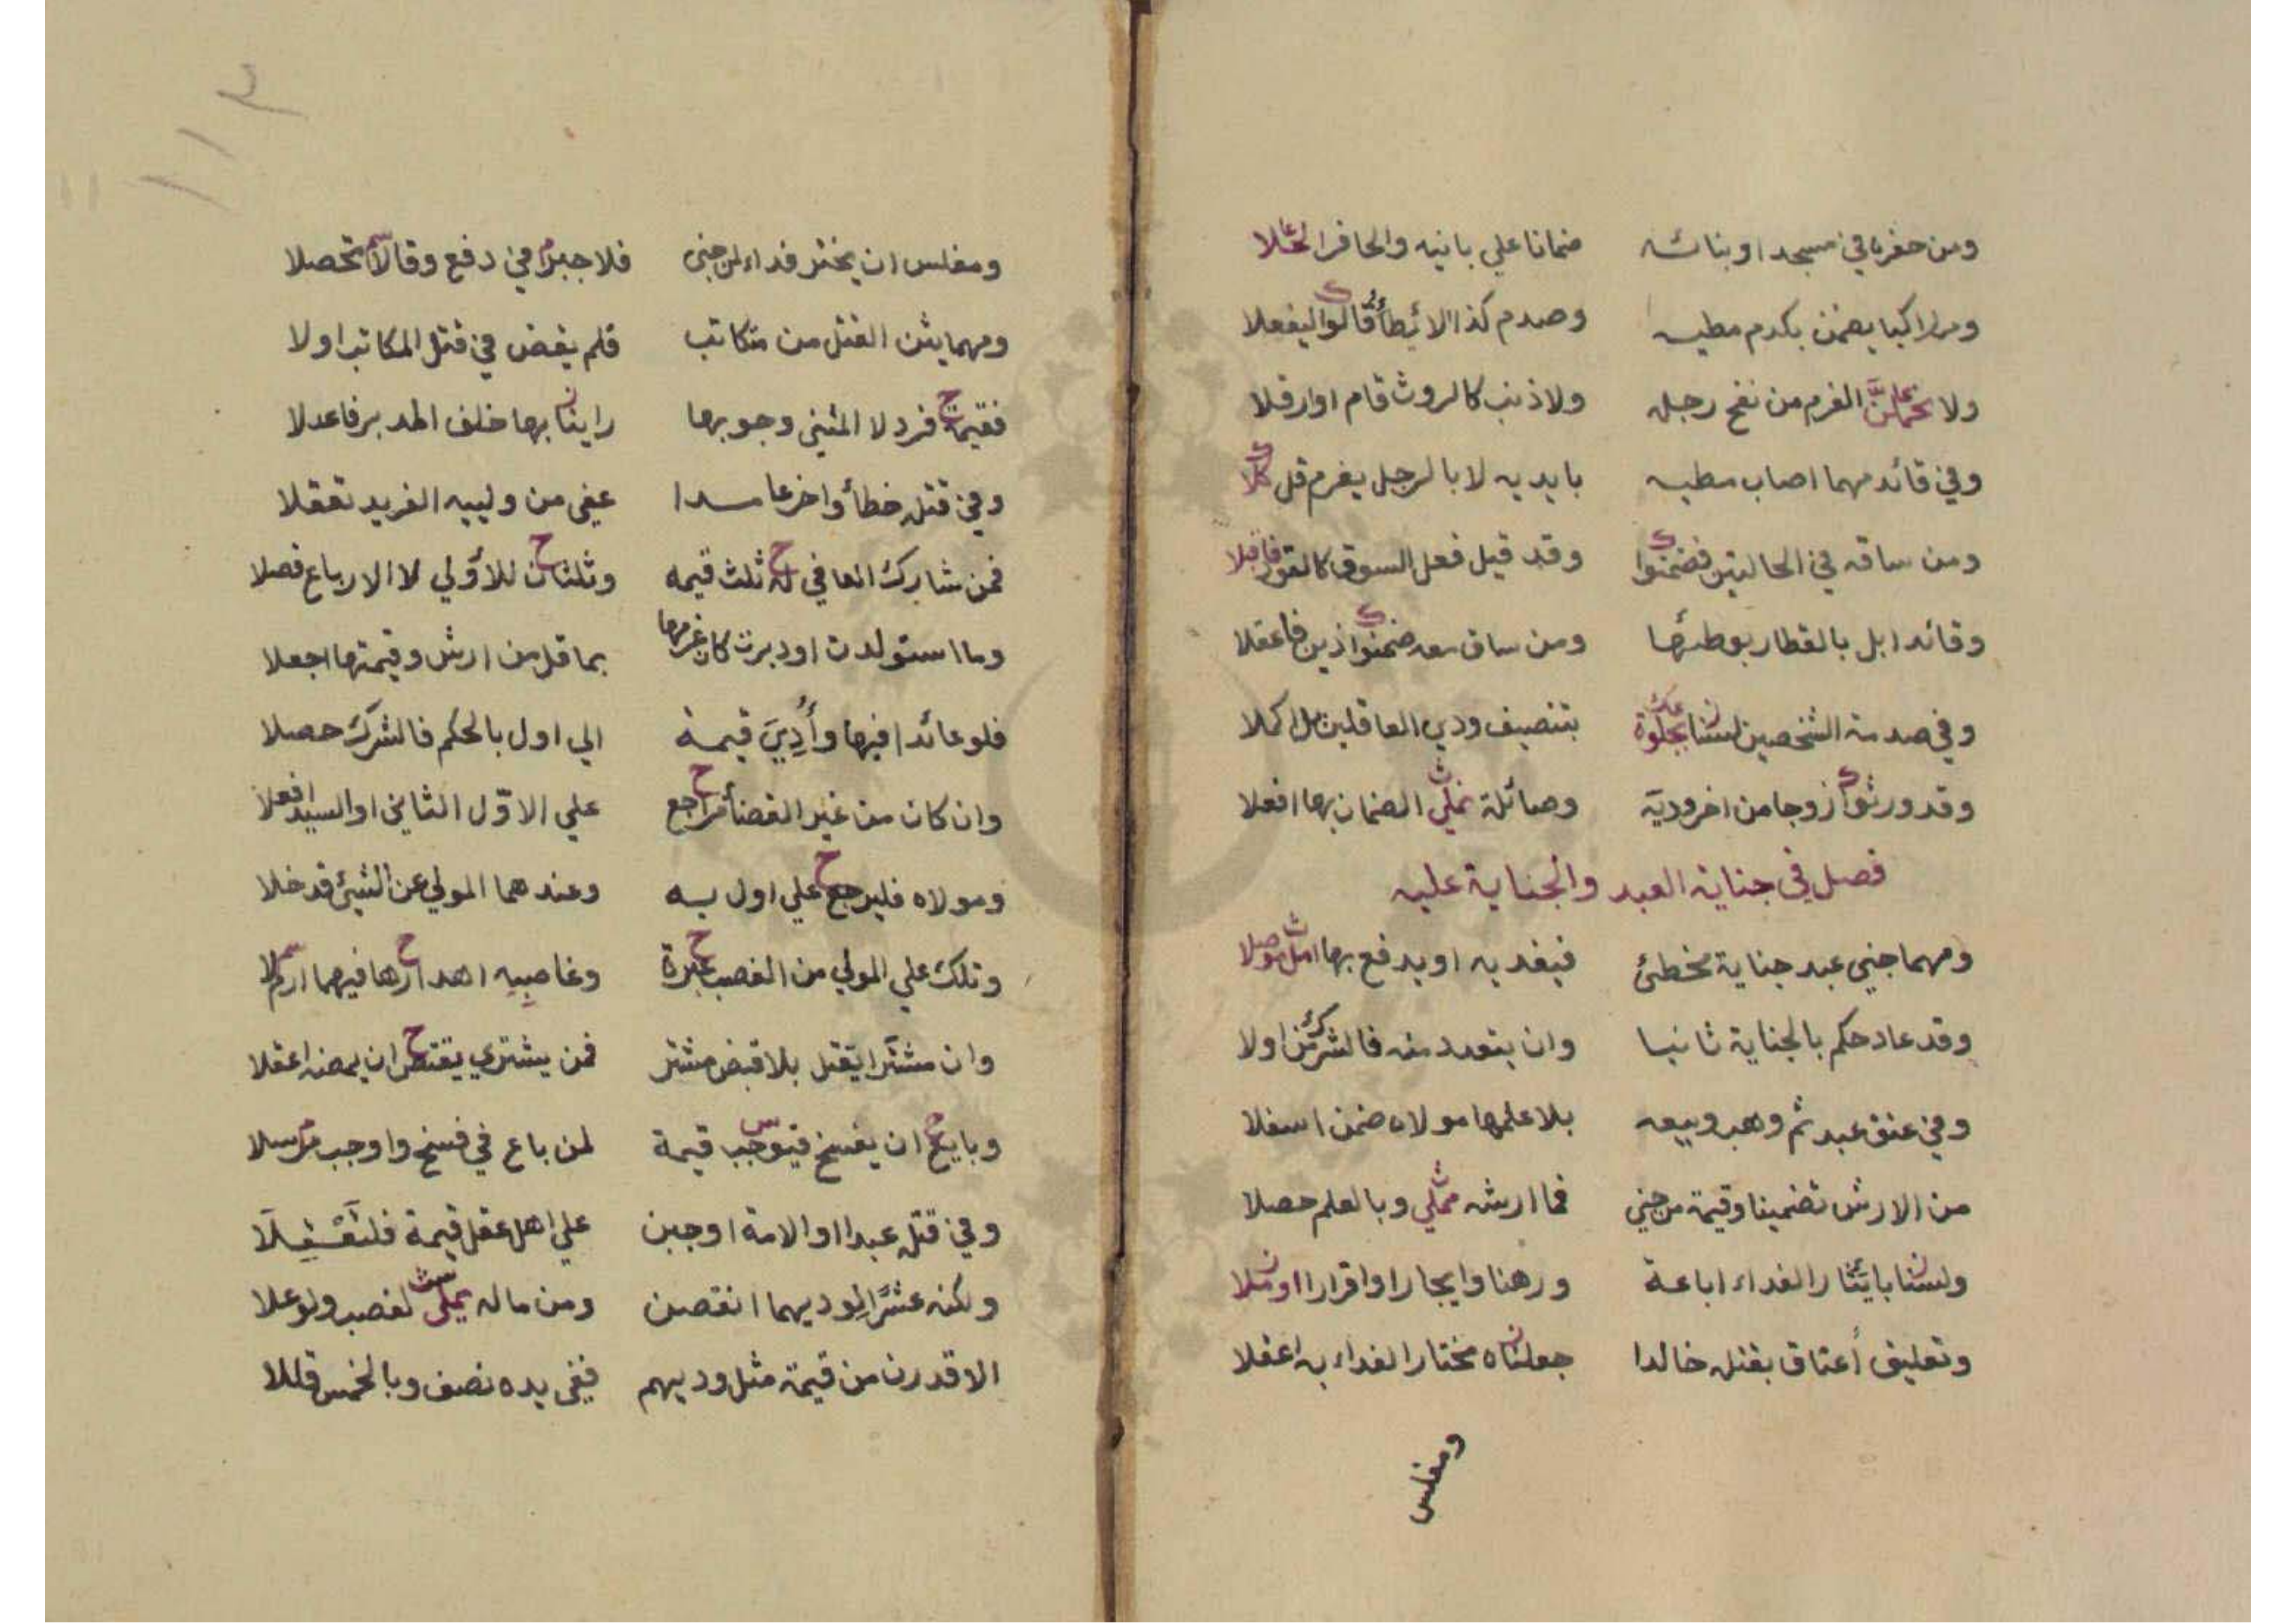 ومن حفر با في مسجد او بنائه ضمانا علي بانيه والحافر
ومن راكبا يضمن بكدم مطيه وصدم كذا الايطأ قالوا ليفعلا
ولا الغرم من نفح رجله ولا ذنب كالروث قام او ارقلا
وفي قائد مهما اصاب مطيه بايديه لا بالرجل يغرم قل كلا
ومن ساقه في الحالتين فضمنوا وقد قيل فعل السوق كالقود
وقائد ابل بالقطار بوطئها ومن ساق معه ضمنوا ذين فاعقلا
وفي صدمة الشخصين لسنا بتنصيف ودي العاقلين بل اكملا
وقد ورثوا زوجا من اخر وديّة وصائلة نملي الضمان بها افعلا
فصل في جناية العبد والجناية عليه
ومهما جني عبد جناية مخطئ فيفديه او يدفع بها
وقد عاد حكم بالجناية ثانيا وان يتعدد منه فالشركن اولا
وفي عتق عبد ثم وهب وبيعه بلا علمها مولاه ضمن اسفلا
من الارش تضمينا وقيمة من جني فما ارشه مملي وبالعلم حصلا
ولسنا بايثار الفداء اباعة ورهنا وايجارا واقرارا او
وتعليق أعتاق بقتله خالدا جعلناه مختار الفداء به اعقلا
ومفلس
١١٣
ومفلس ان يختر فداء لمن جني فلا جبر في دفع وقالا تحصلا
ومهما يثن القتل من متكاتب فلم يقض في قتل المكاتب اولا
فقيمة فرد لا المثني وجوبها راينا بها خلف المدبر فاعدلا
وفي قتله خطأ واخر عامدا عفي من ولييه الفريد تعقلا
فمن شارك العافي له ثلث قيمه وثلثان للأولي لا الارباع فصلا
وما استولدت او دبرت كان غرمها بما قل من ارش وقيمتها اجعلا
فلو عائدا فيها وأُدِيَ قيمة الي اول بالحكم فالشرك حصلا
وان كان من غير القضا مراجع علي الاوّل الثاني او السيد افعلا
ومولاه فليرجع علي اول به وعندهما المولي عن الشيئ قد خلا
وتلك علي المولي من الغصب وغاصبِيِه اهدارها فيهما
وان مشترا يقتل بلا قبض مشتر فمن يشتري يقتص ان يمضه اعقلا
وبايع ان يفسخ فيوجب قيمة لمن باع في فسخ واوجب مرسلا
وفي قتل عبدا او الامة اوجبن علي اهل عقل قيمة
ولكنه عشرًا لوديهما انقصن ومن ماله يملي لغصب ولو علا
الاقدرن من قيمة مثل وديهم ففي يده نصف وبالخمس قللا